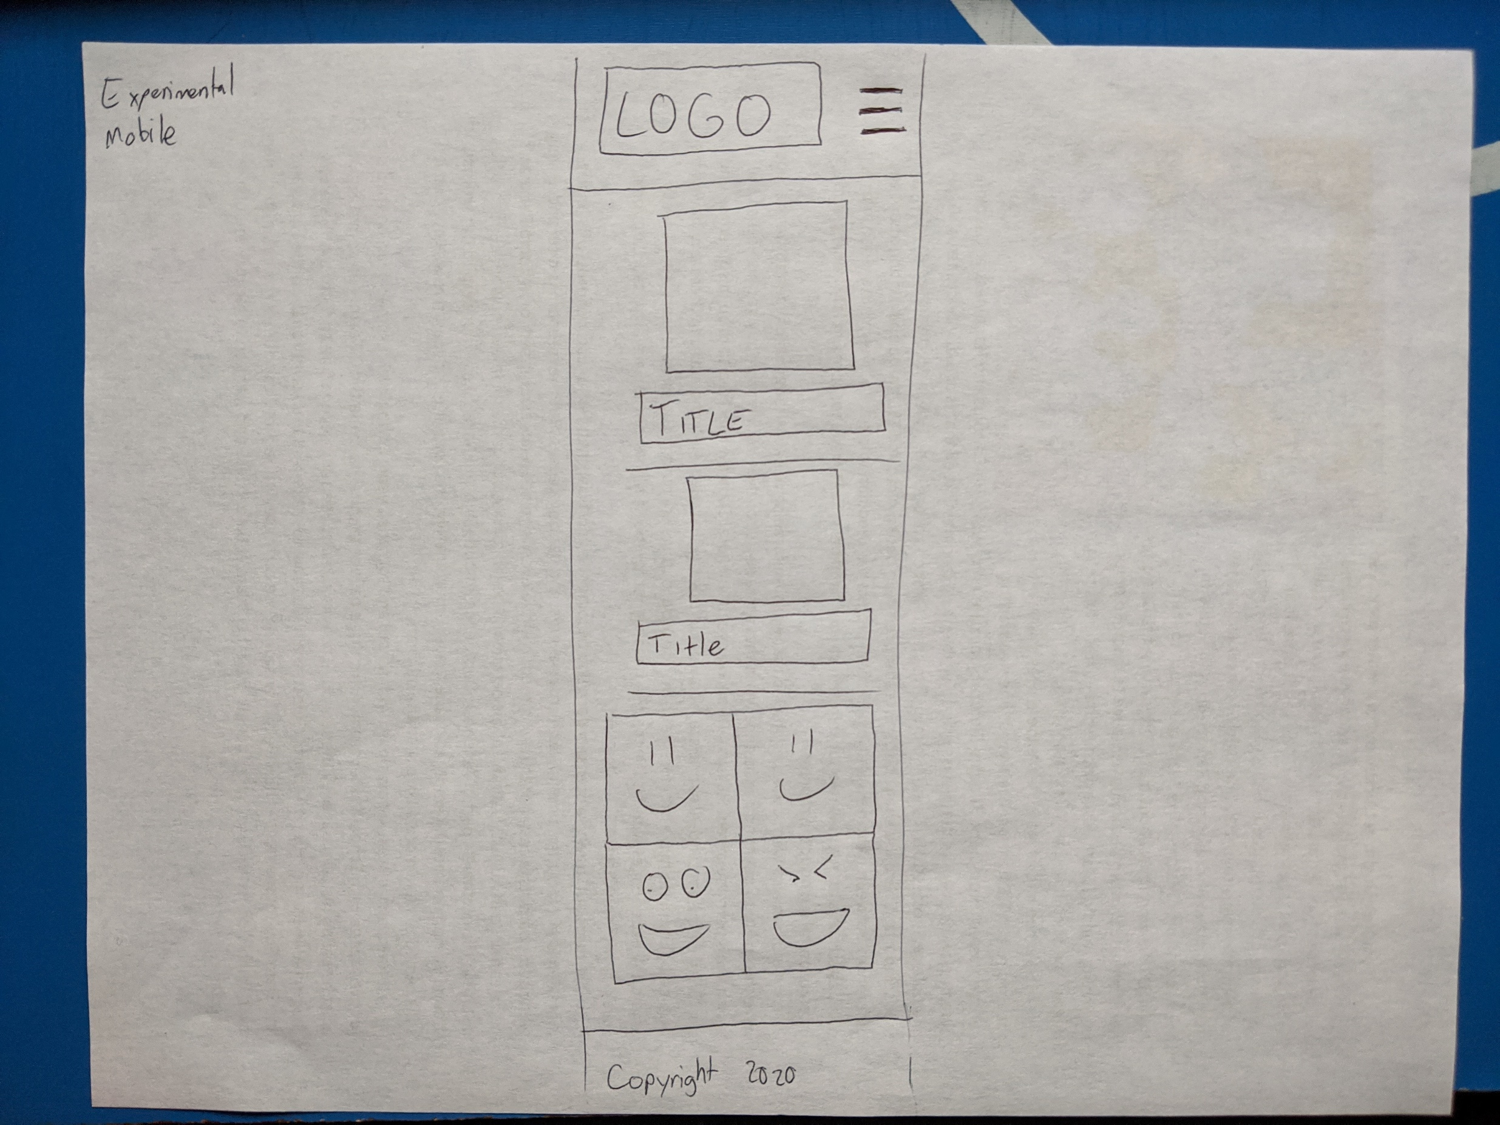 Experimental
Mobile
LOGO
TITLE
Title
Copyright 2020